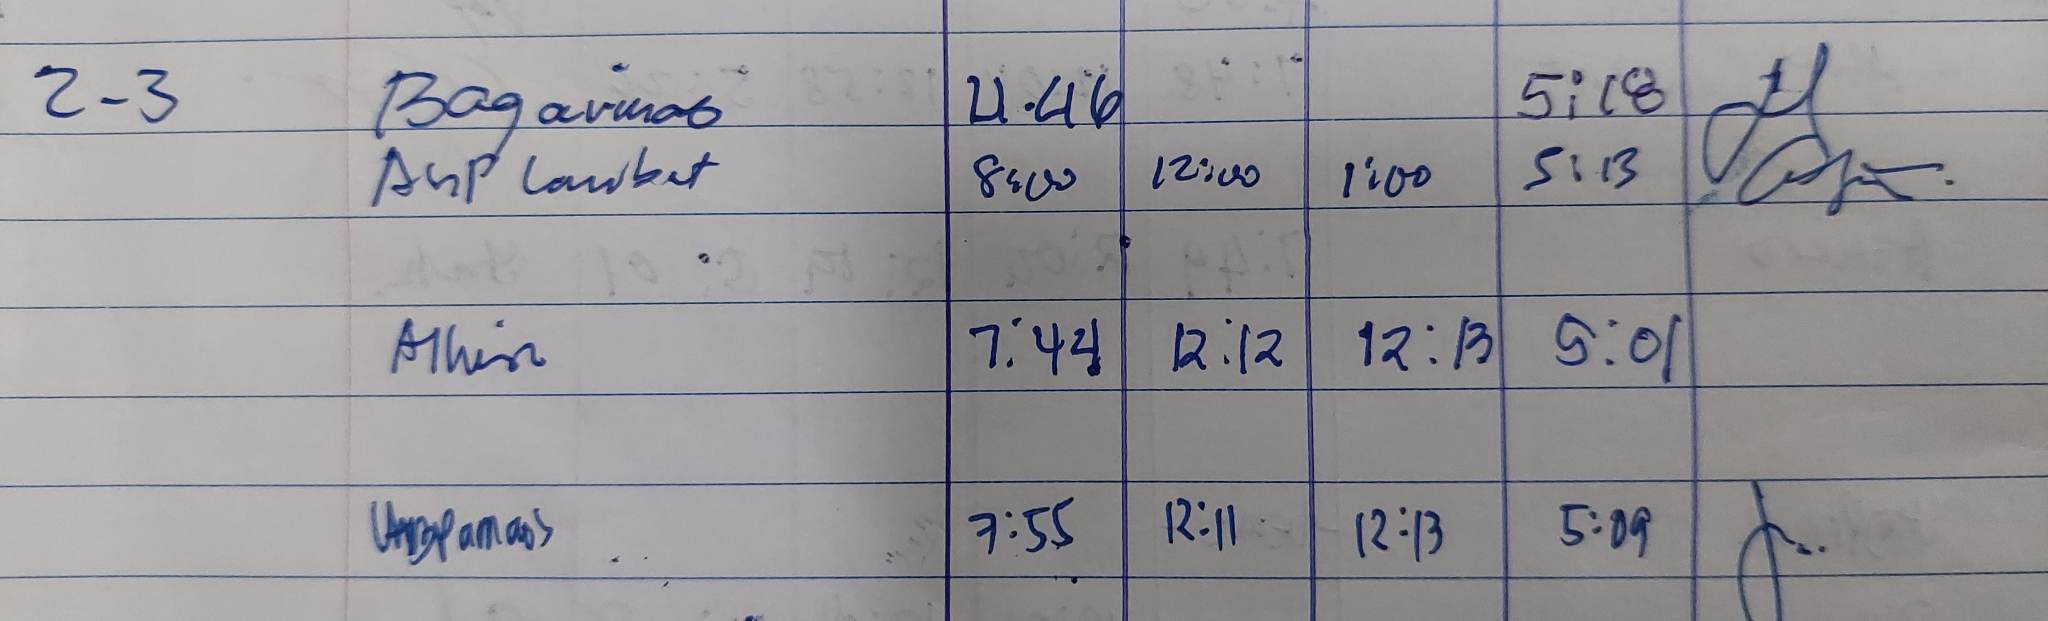 2-3 Bagarinao 4:46 5:18
8:00 12:00 1:00 5:13
7:44 12:12 12:13 5:01
7:55 12:11 12:13 5:09